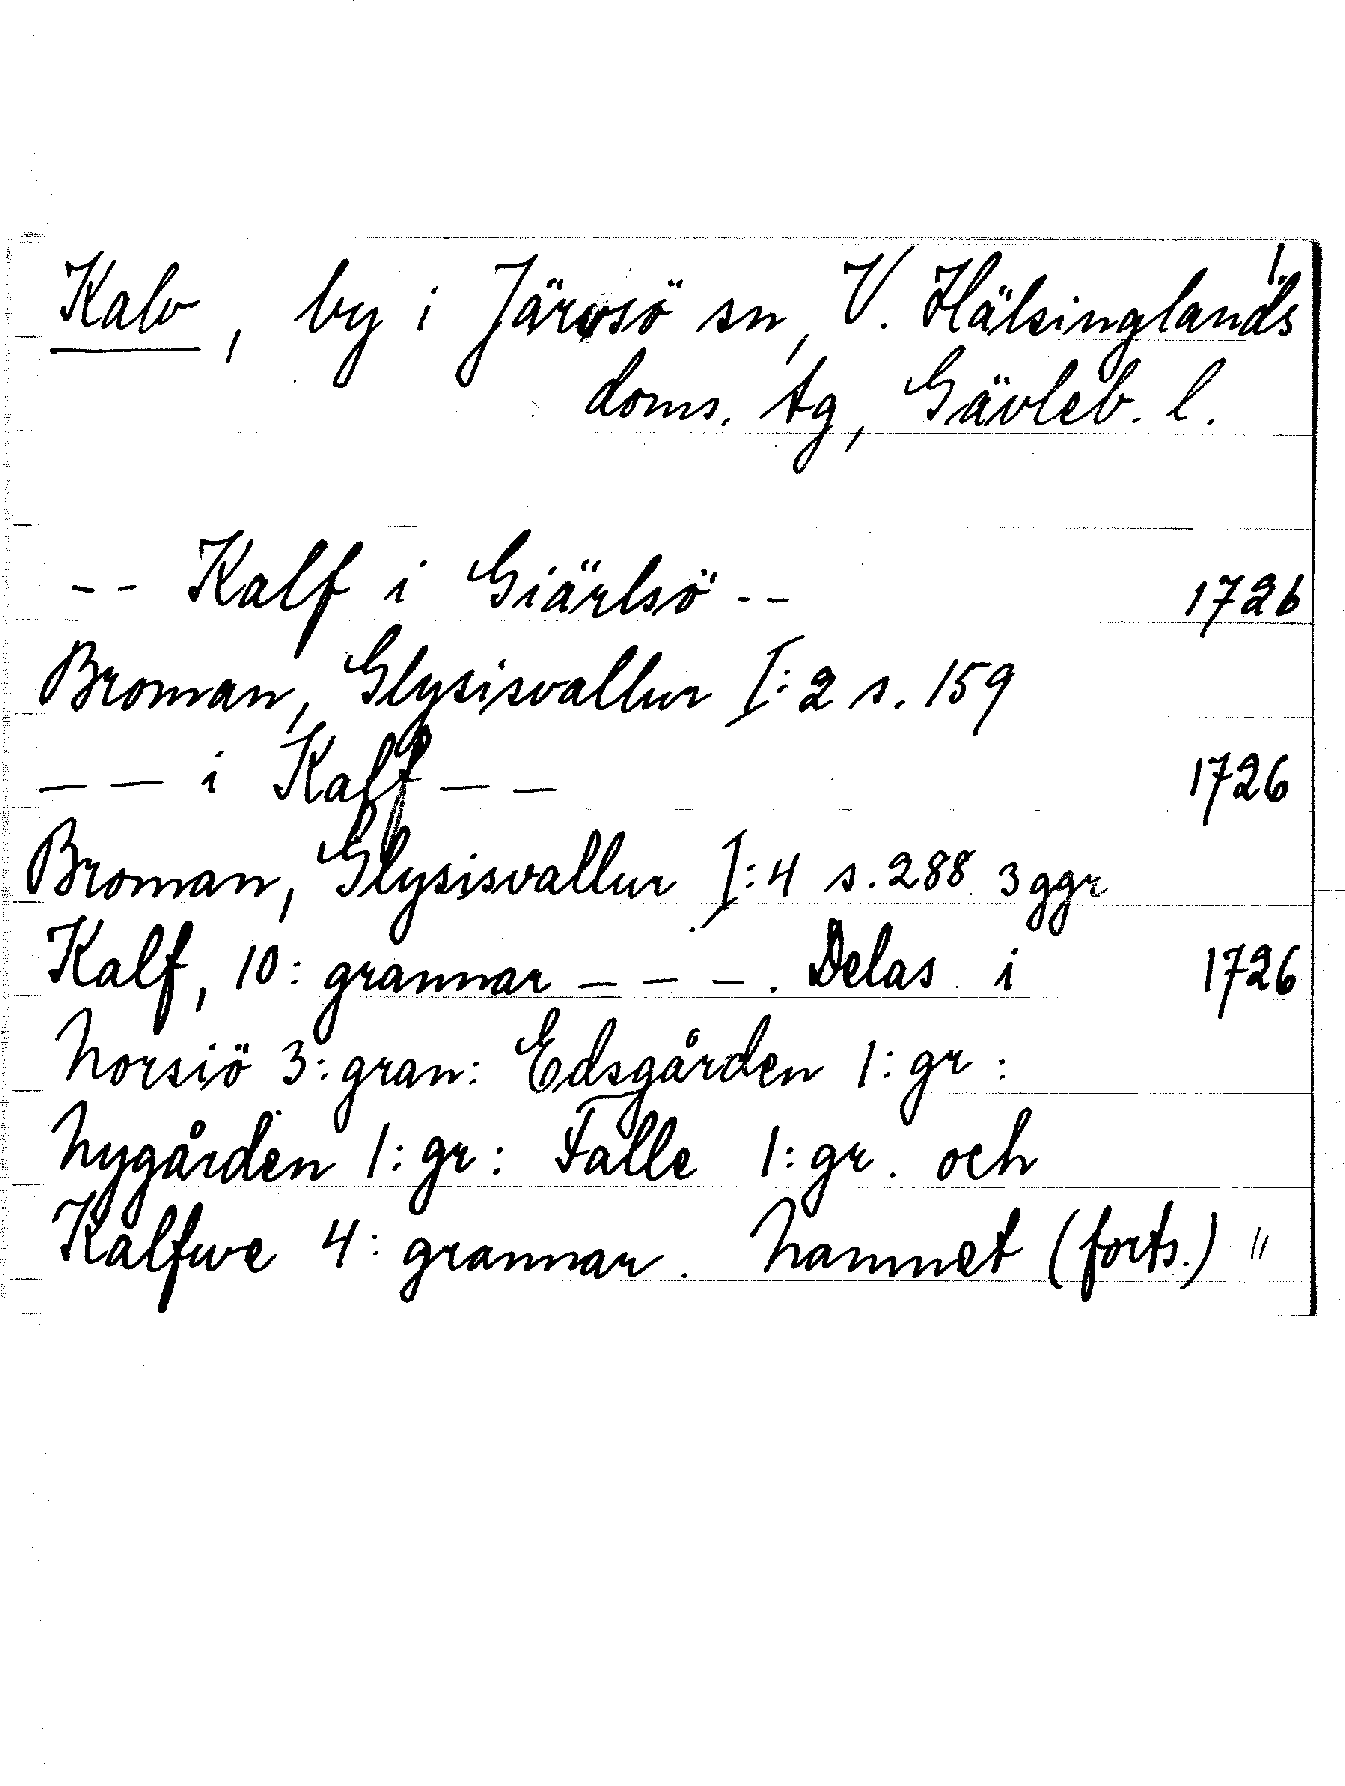 Kalv, by i Järvsö sn, V. Hälsinglands
doms. tg, Gävleb. l.
-- Kalf i Giärlsö -- 1726
Broman, Glysisvallur I:2 s. 159
— — i Kalf — — 1726
Broman, Glysisvallur I:4 s. 288 3 ggr
Kalf, 10: grannar — — —. Delas i 1726
Norsiö 3: gran: Edsgården 1: gr:
Nygården 1: gr: Falle 1: gr. och
Kalfwe 4: grannar. Namnet (forts.) "